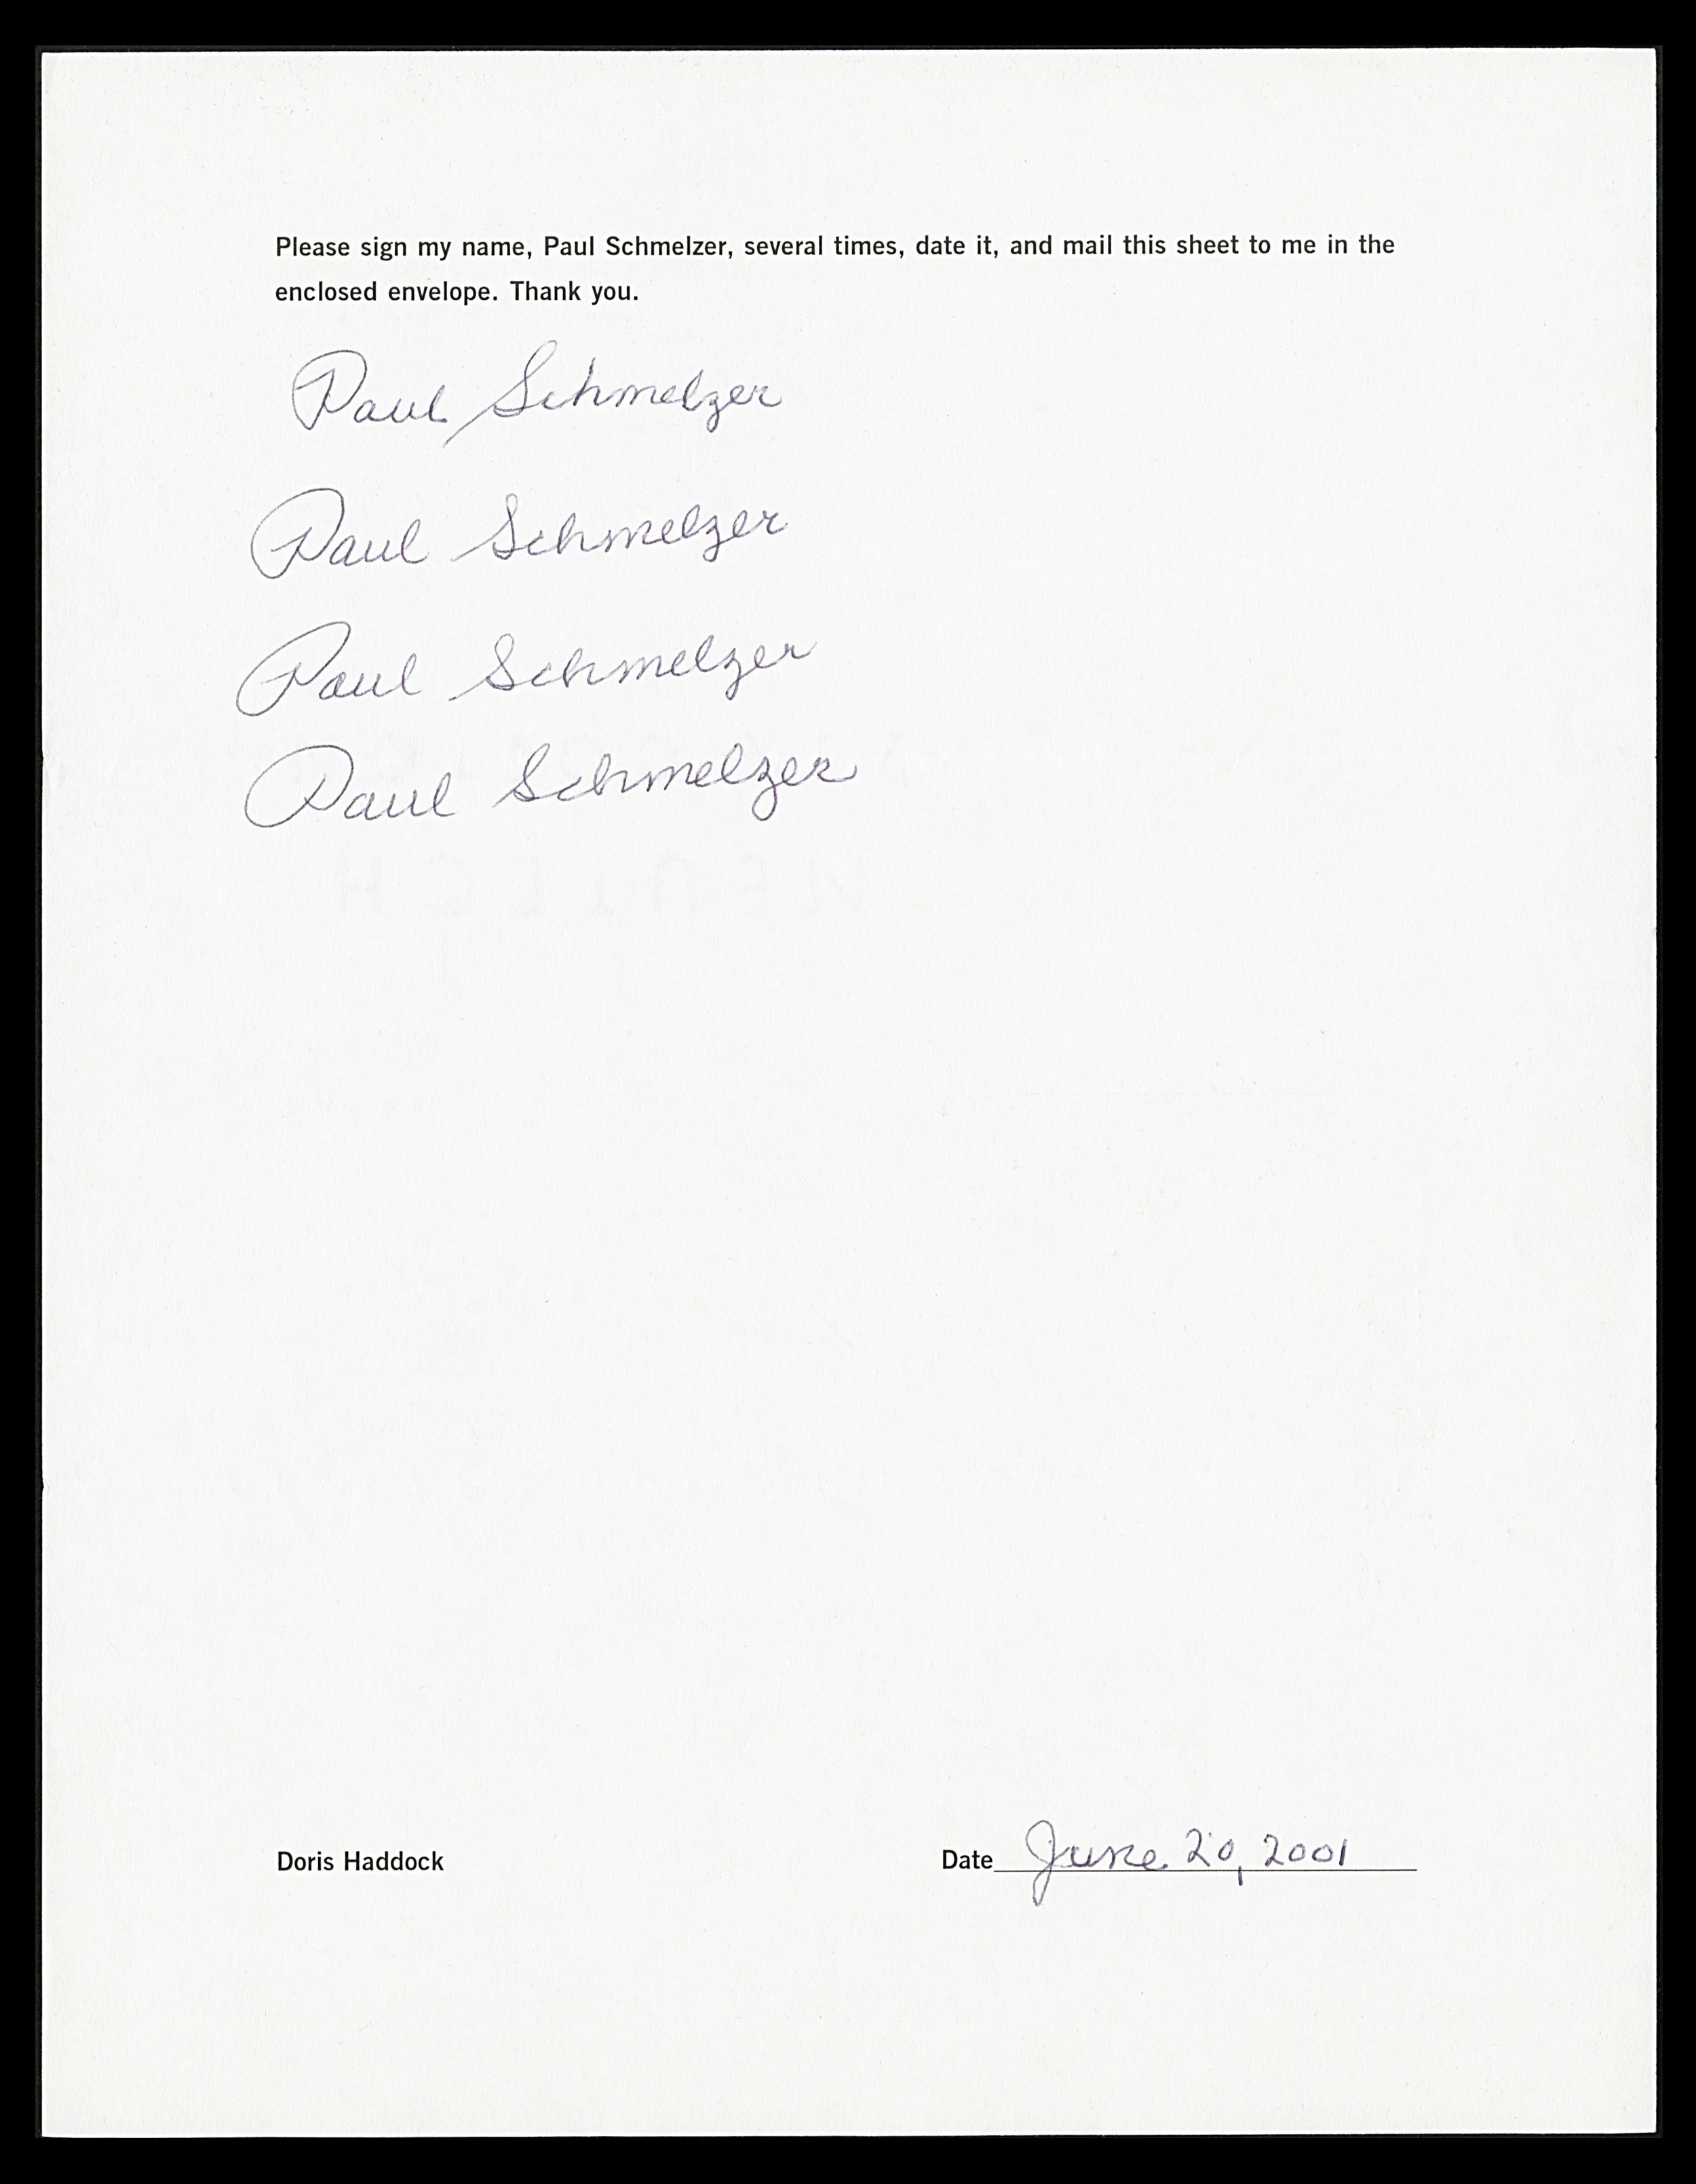 Please sign my name, Paul Schmelzer, several times, date it, and mail this sheet to me in the
enclosed envelope. Thank you.
Paul Schmelzer
Paul Schmelzer
Paul Schmelzer
Paul Schmelzer
Doris Haddock Date June 20, 2001